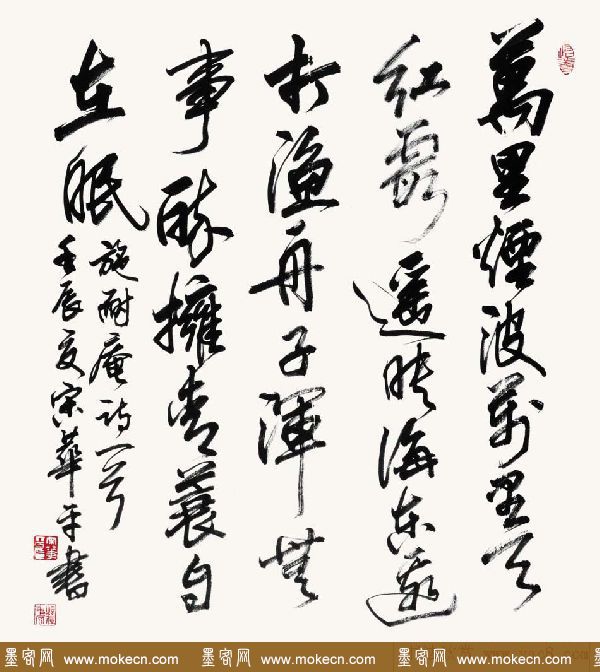 萬里煙波萬里天
紅霞遥映海東邊
打漁舟子渾無
事醉擁青蓑自
在眠
施耐庵詩一首
壬辰夏宋華平書
墨客网 www.mokecn.com 墨客网 www.mokecn.com 墨客网 www.mokecn.com 墨客网 www.mokecn.com